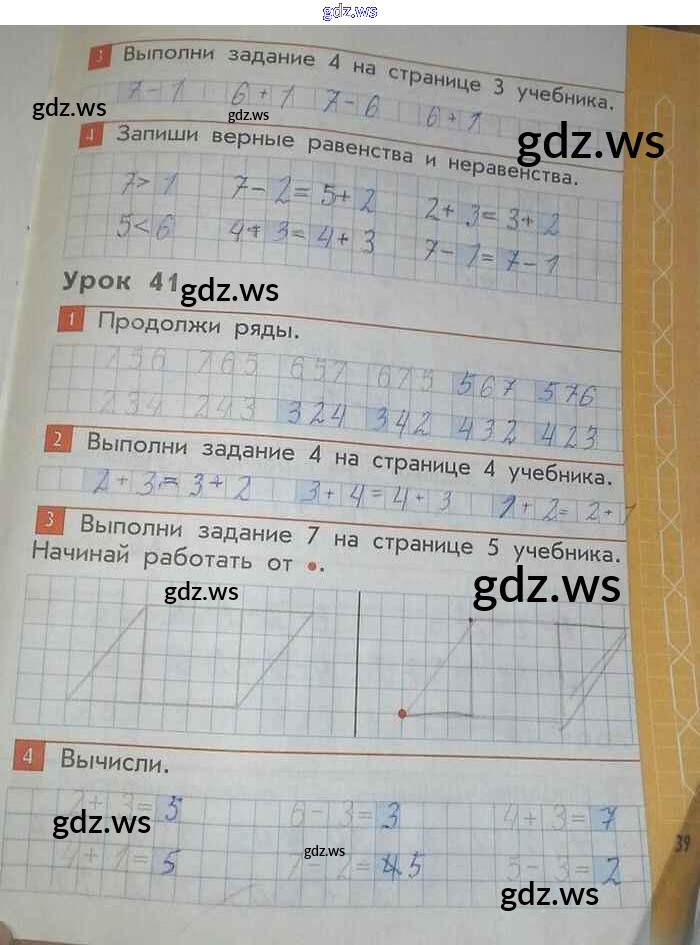 gdz.ws
3 Выполни задание 4 на странице 3 учебника.
7-1 6+1 7-6 6+1
gdz.ws gdz.ws gdz.ws
4 Запиши верные равенства и неравенства.
7>1 7-2=5+2 2+3=3+2
5<6 4+3=4+3 7-1=7-1
Урок 41
gdz.ws
1 Продолжи ряды.
756 765 657 675 567 576
234 243 324 342 432 423
2 Выполни задание 4 на странице 4 учебника.
2+3=3+2 3+4=4+3 1+2=2+1
3 Выполни задание 7 на странице 5 учебника.
Начинай работать от •.
gdz.ws gdz.ws
4 Вычисли.
2+3=5 6-3=3 4+3=7
gdz.ws
4+1=5 7-2=5 5-3=2
gdz.ws
gdz.ws
39